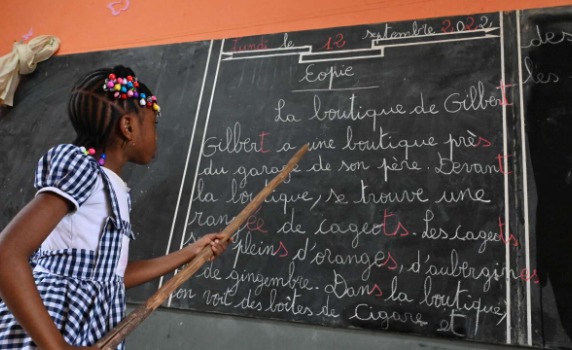 Lundi le 12 septembre 2022
Copie
La boutique de Gilbert
Gilbert a une boutique près
du garage de son père. Devant
la boutique, se trouve une
rangée de cageots. Les cageots
pleins d'oranges, d'aubergines
de gingembre. Dans la boutique,
on voit des boîtes de Cigare et
des
les